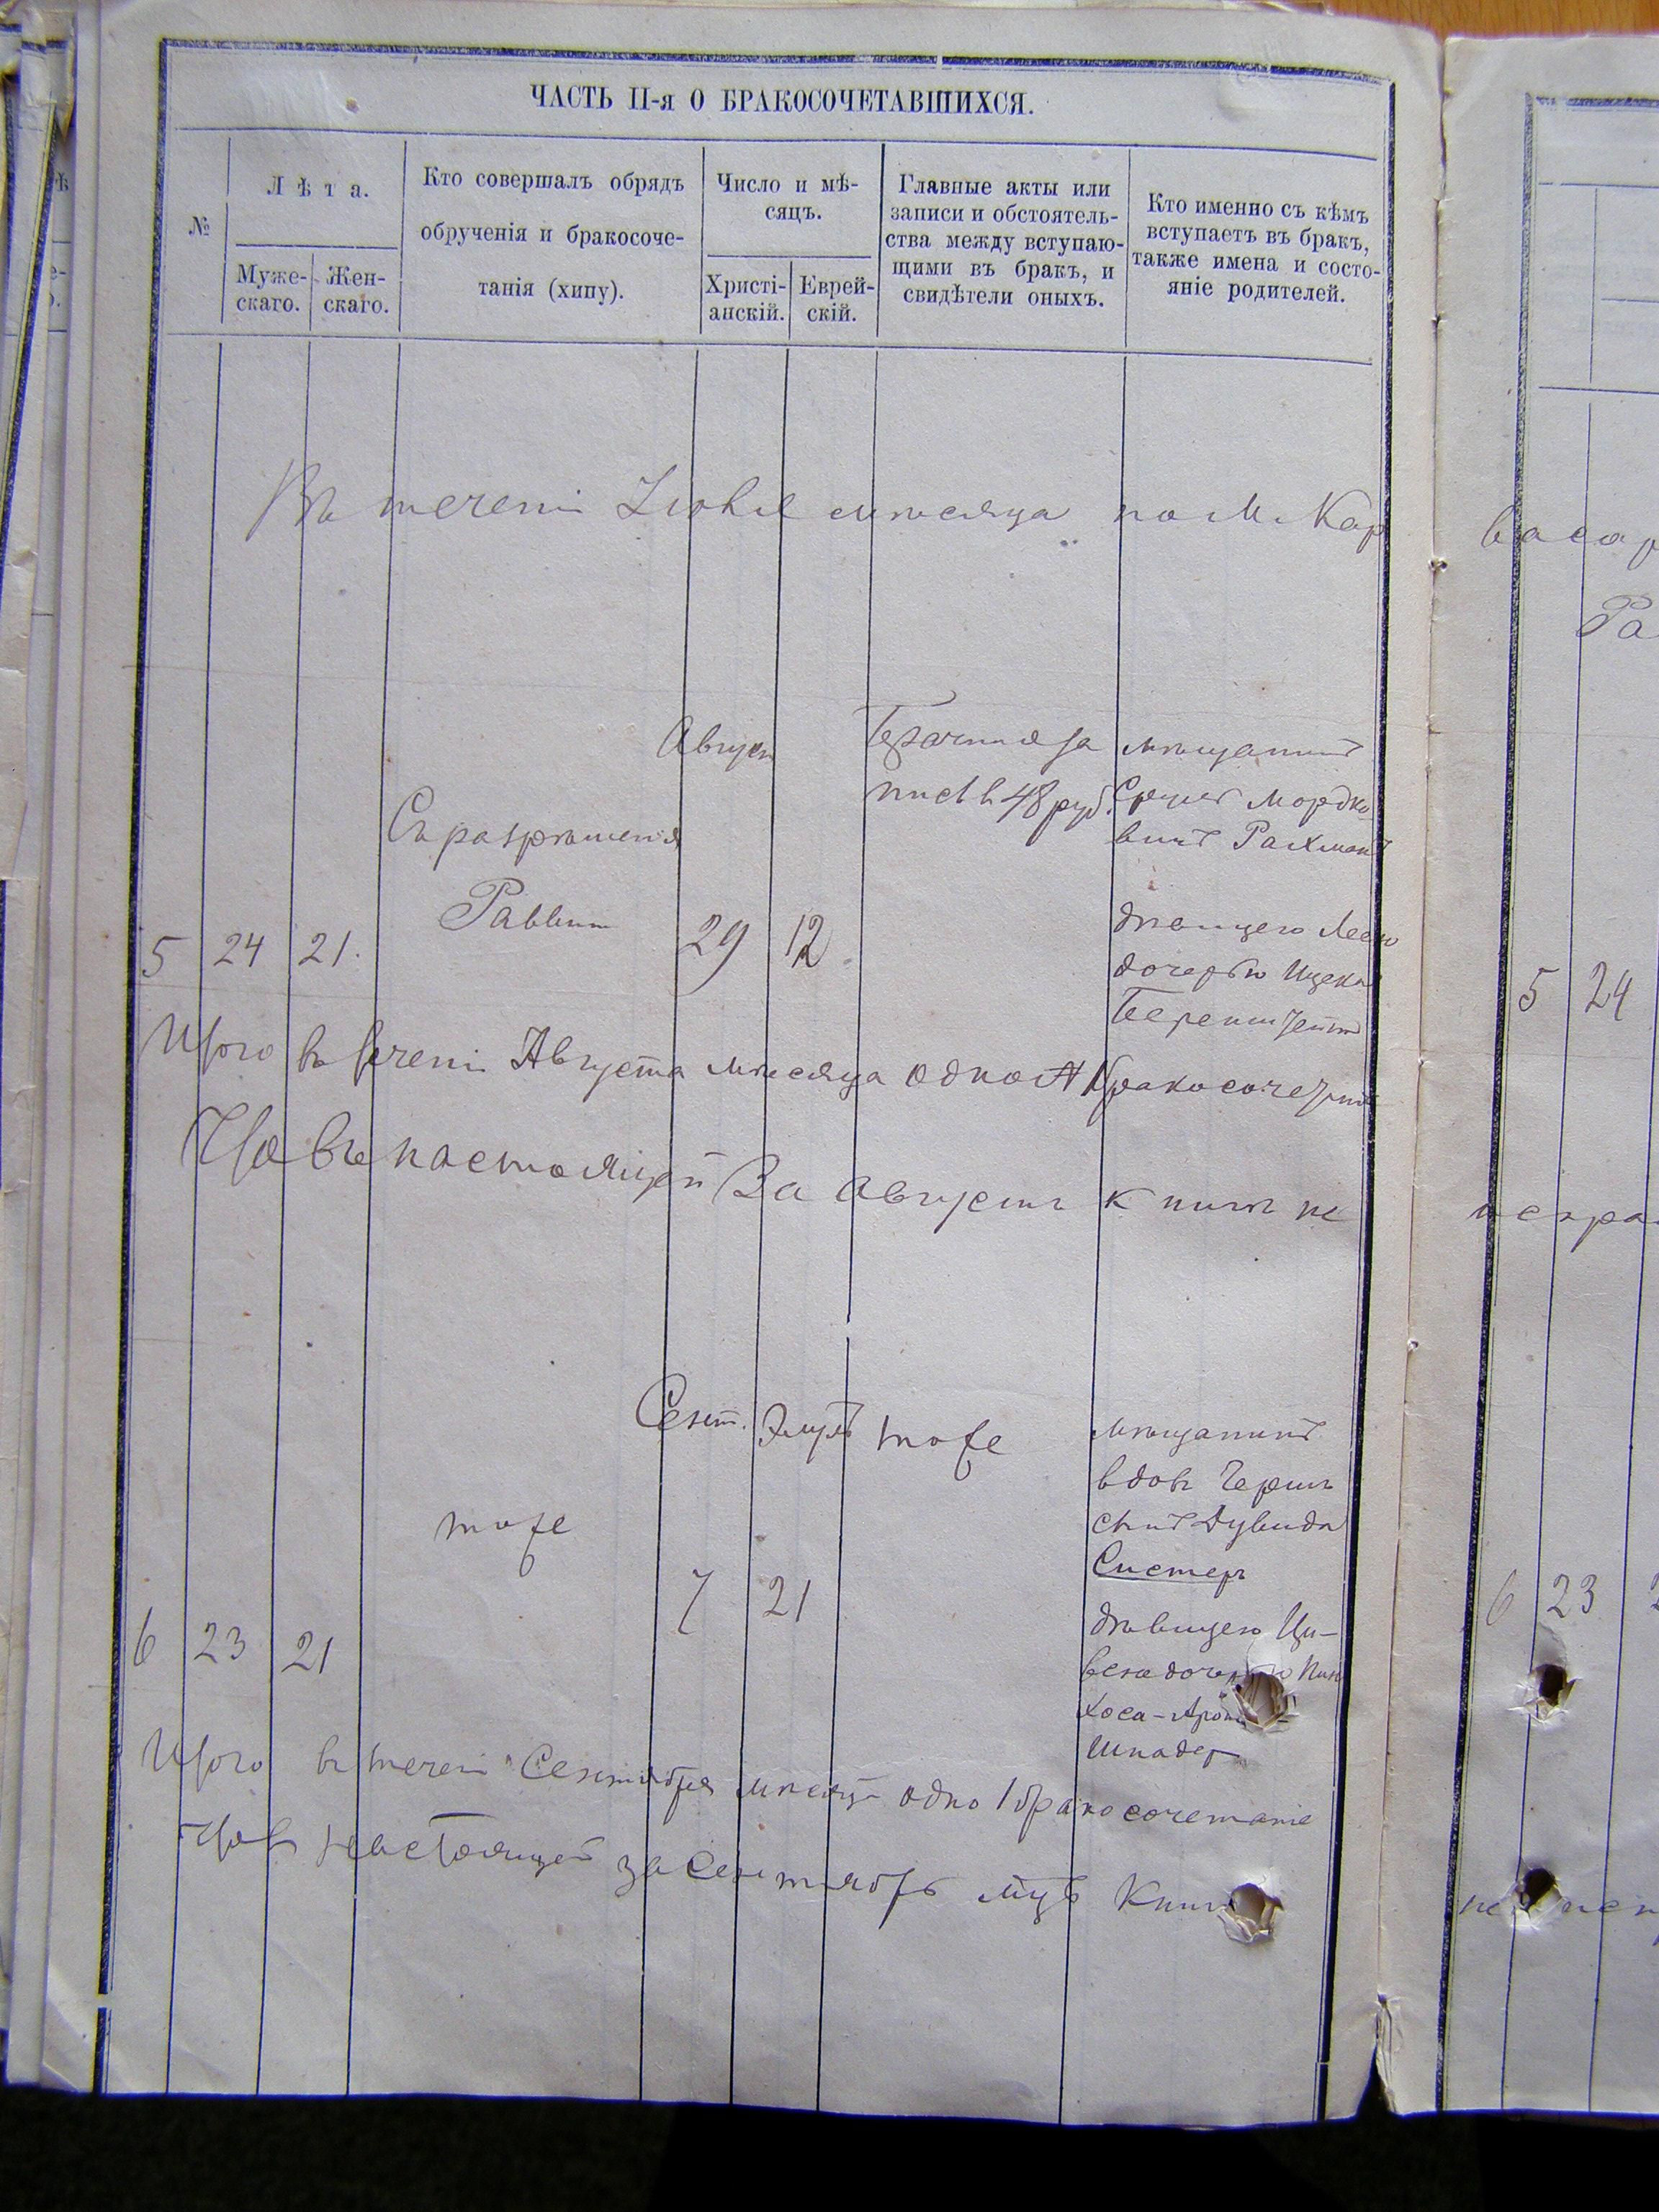 ЧАСТЬ II-я О БРАКОСОЧЕТАВШИХСЯ.
№
Лѣта.
Муже-
скаго.
Жен-
скаго.
Кто совершалъ обрядъ
обрученія и бракосоче-
танія (хипу).
Число и мѣ-
сяцъ.
Христі-
анскій.
Еврей-
скій.
Главные акты или
записи и обстоятель-
ства между вступаю-
щими въ бракъ, и
свидѣтели оныхъ.
Кто именно съ кѣмъ
вступаетъ въ бракъ,
также имена и состо-
яніе родителей.
Въ течени мѣсяца по М. Кар
5
24
21.
Съ разрѣшенія
Раввин
Август
29
12
за
пись в 48 руб.
мѣщанинъ
Мордко
вичъ Рахман
дѣвицею
дочерью Ицека
Итого въ течени Августа мѣсяца одно 1 бракосочетание
Что въ настоящей За Августъ книгѣ не
6
23
21
тоже
Сент.
7
Элулъ
21
тоже
мѣщанинъ
вдов
сынъ Дувида
Систеръ
дѣвицею Ци-
Пин
хоса-
Шпадер
Итого въ течени Сентября мѣсяца одно 1 бракосочетание
Что в настоящей за Сентябрь мцъ Книг
5
24
6
23